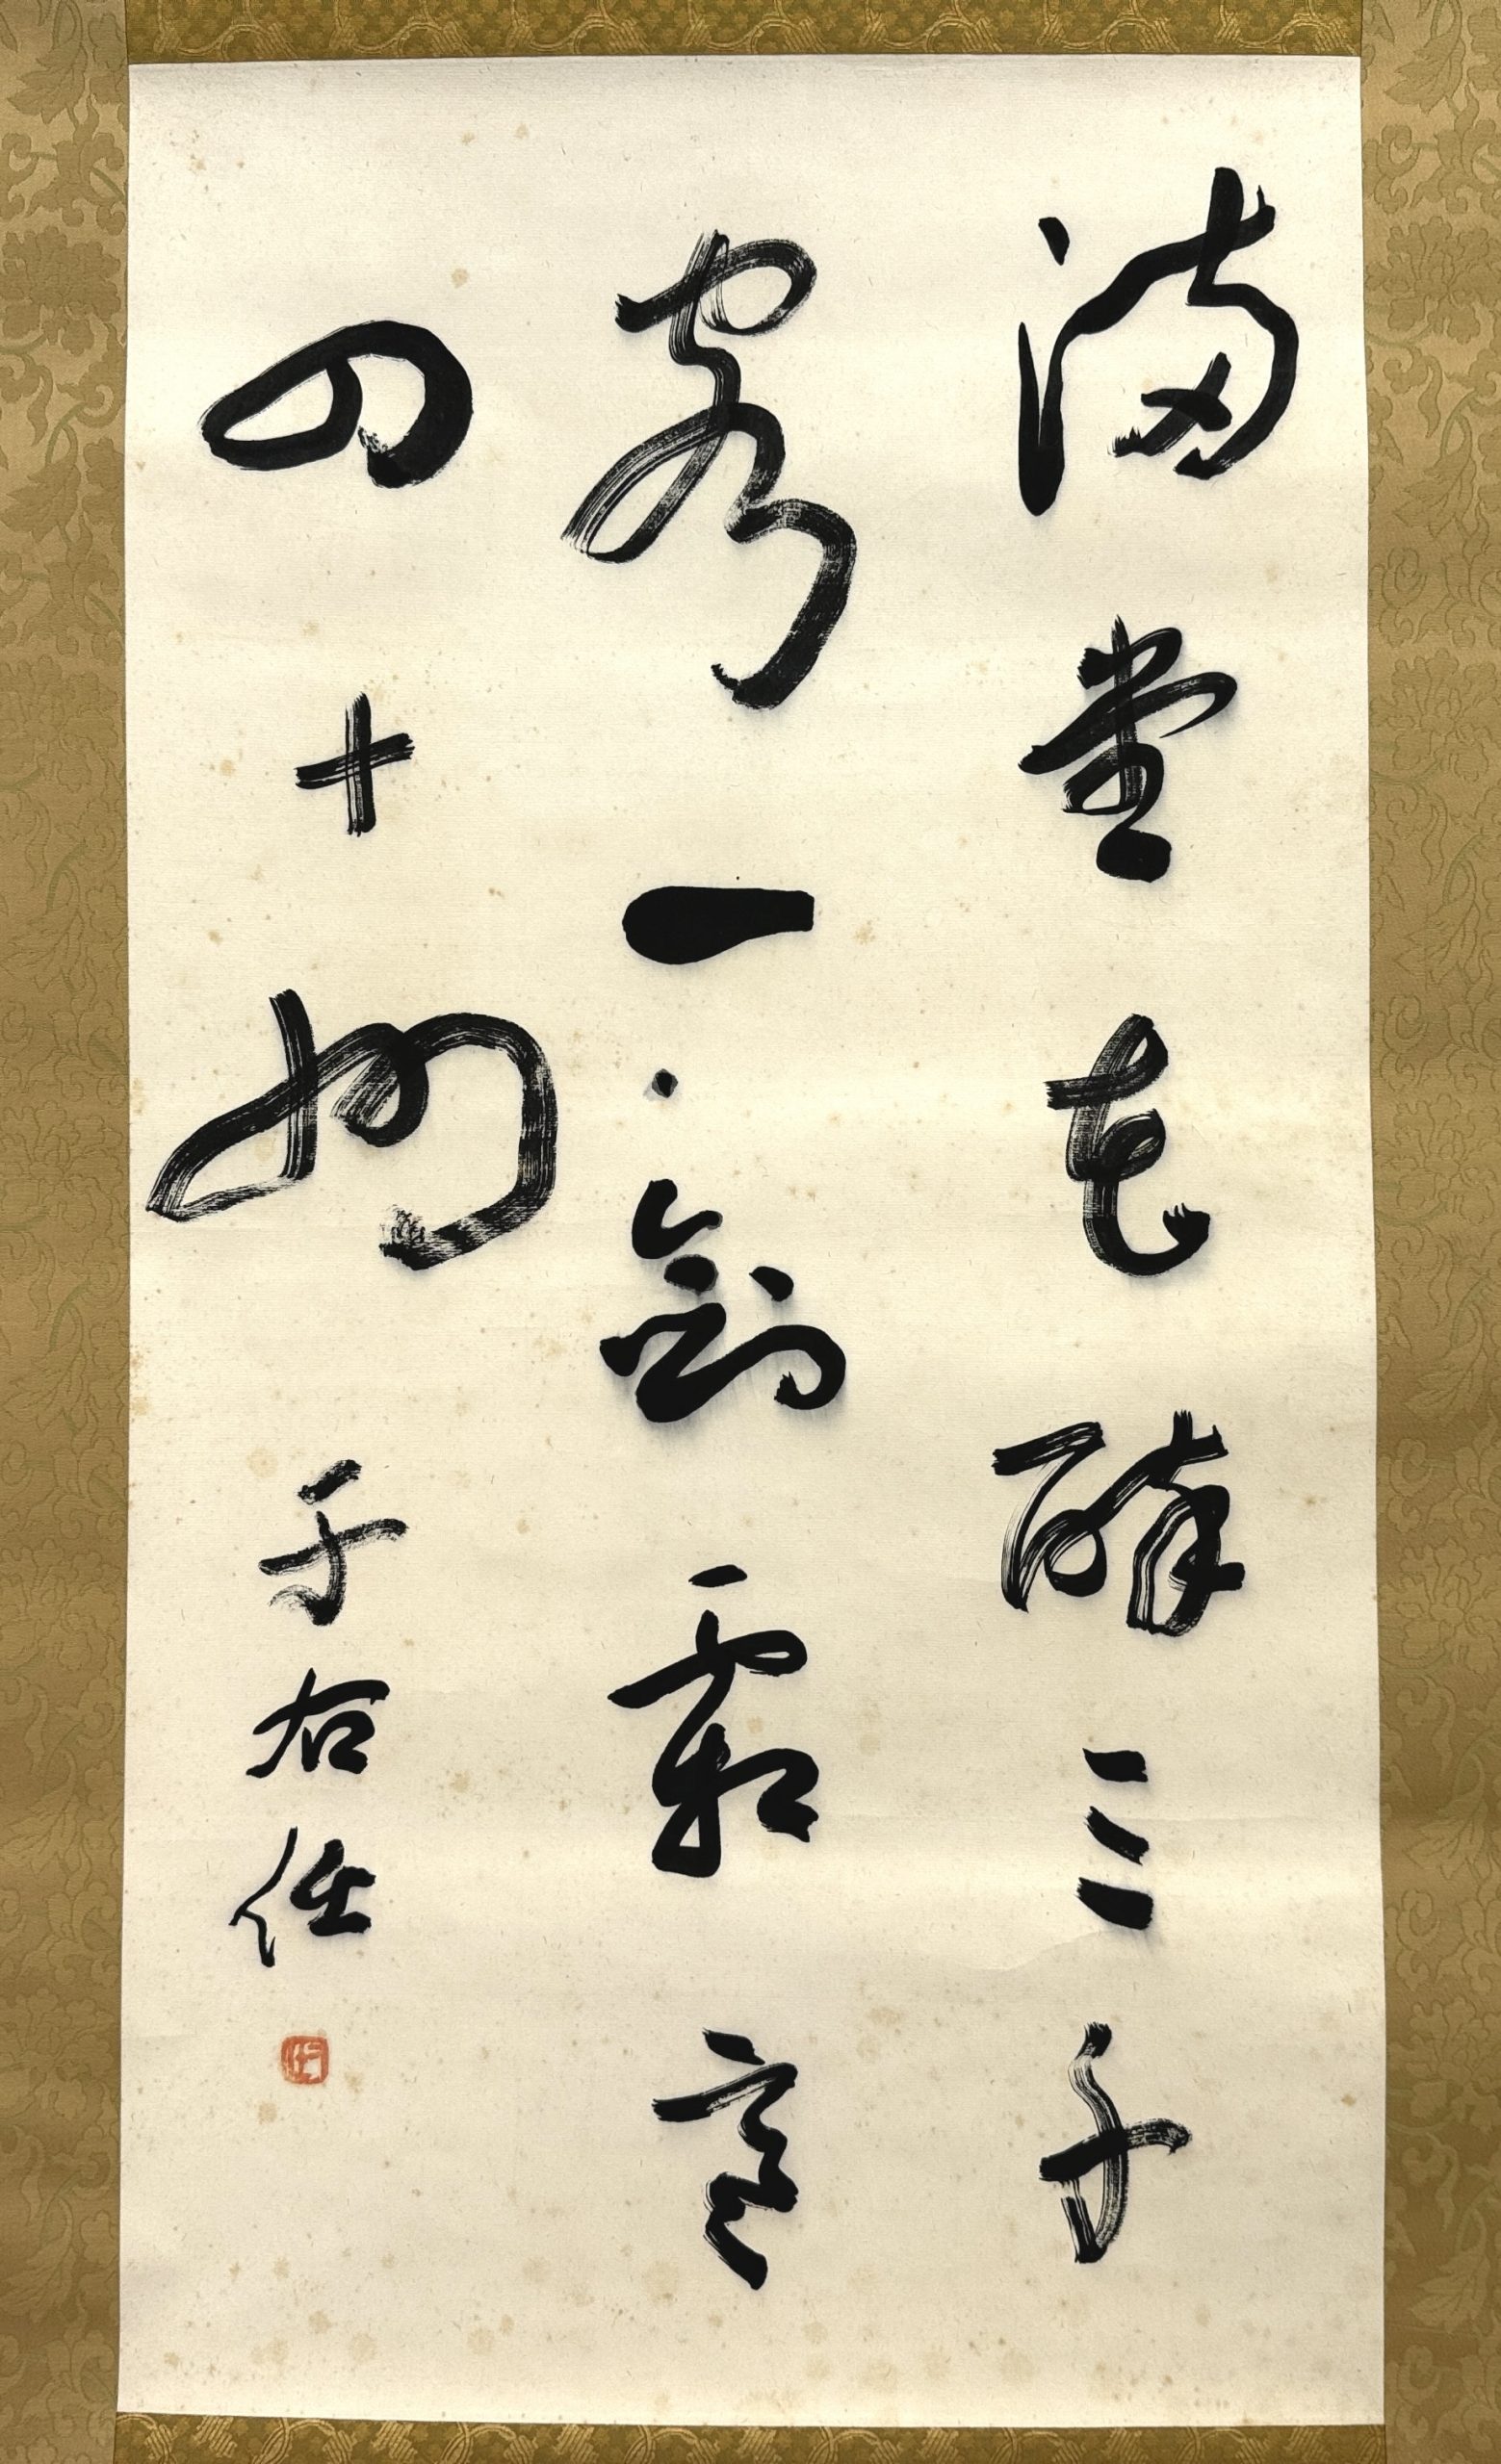 滿堂花醉三千
客一劍霜寒
四十州 于右任